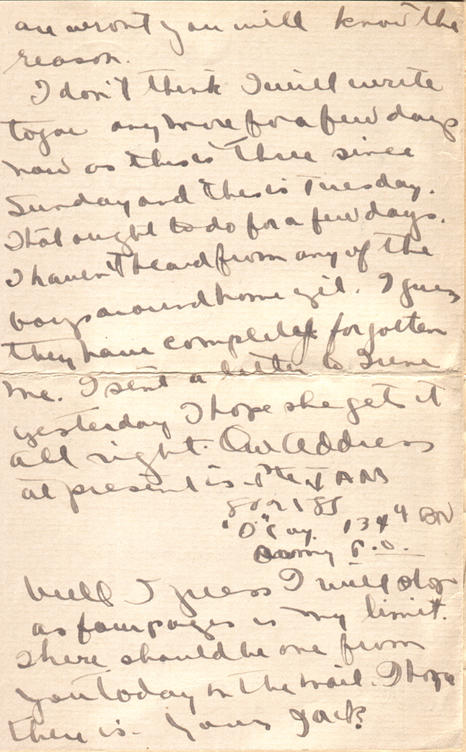 are wront you will know the
reason.
I don't think I will write
to you any more for a few days
now as this is three since
Sunday and this is Tuesday.
That ought to do for a few days.
I haven't heard from any of the
boys around home yet. I guess
they have completely forgotten
me. I sent a letter to Irene
yesterday I hope she get it
all right. Our Address
at present is Pte J A M
"D" Coy. 134th BN
Army P.O.
Well I guess I will stop
as four pages is my limit.
There should be one from
you today in the mail. I hope
there is. Yours Jack